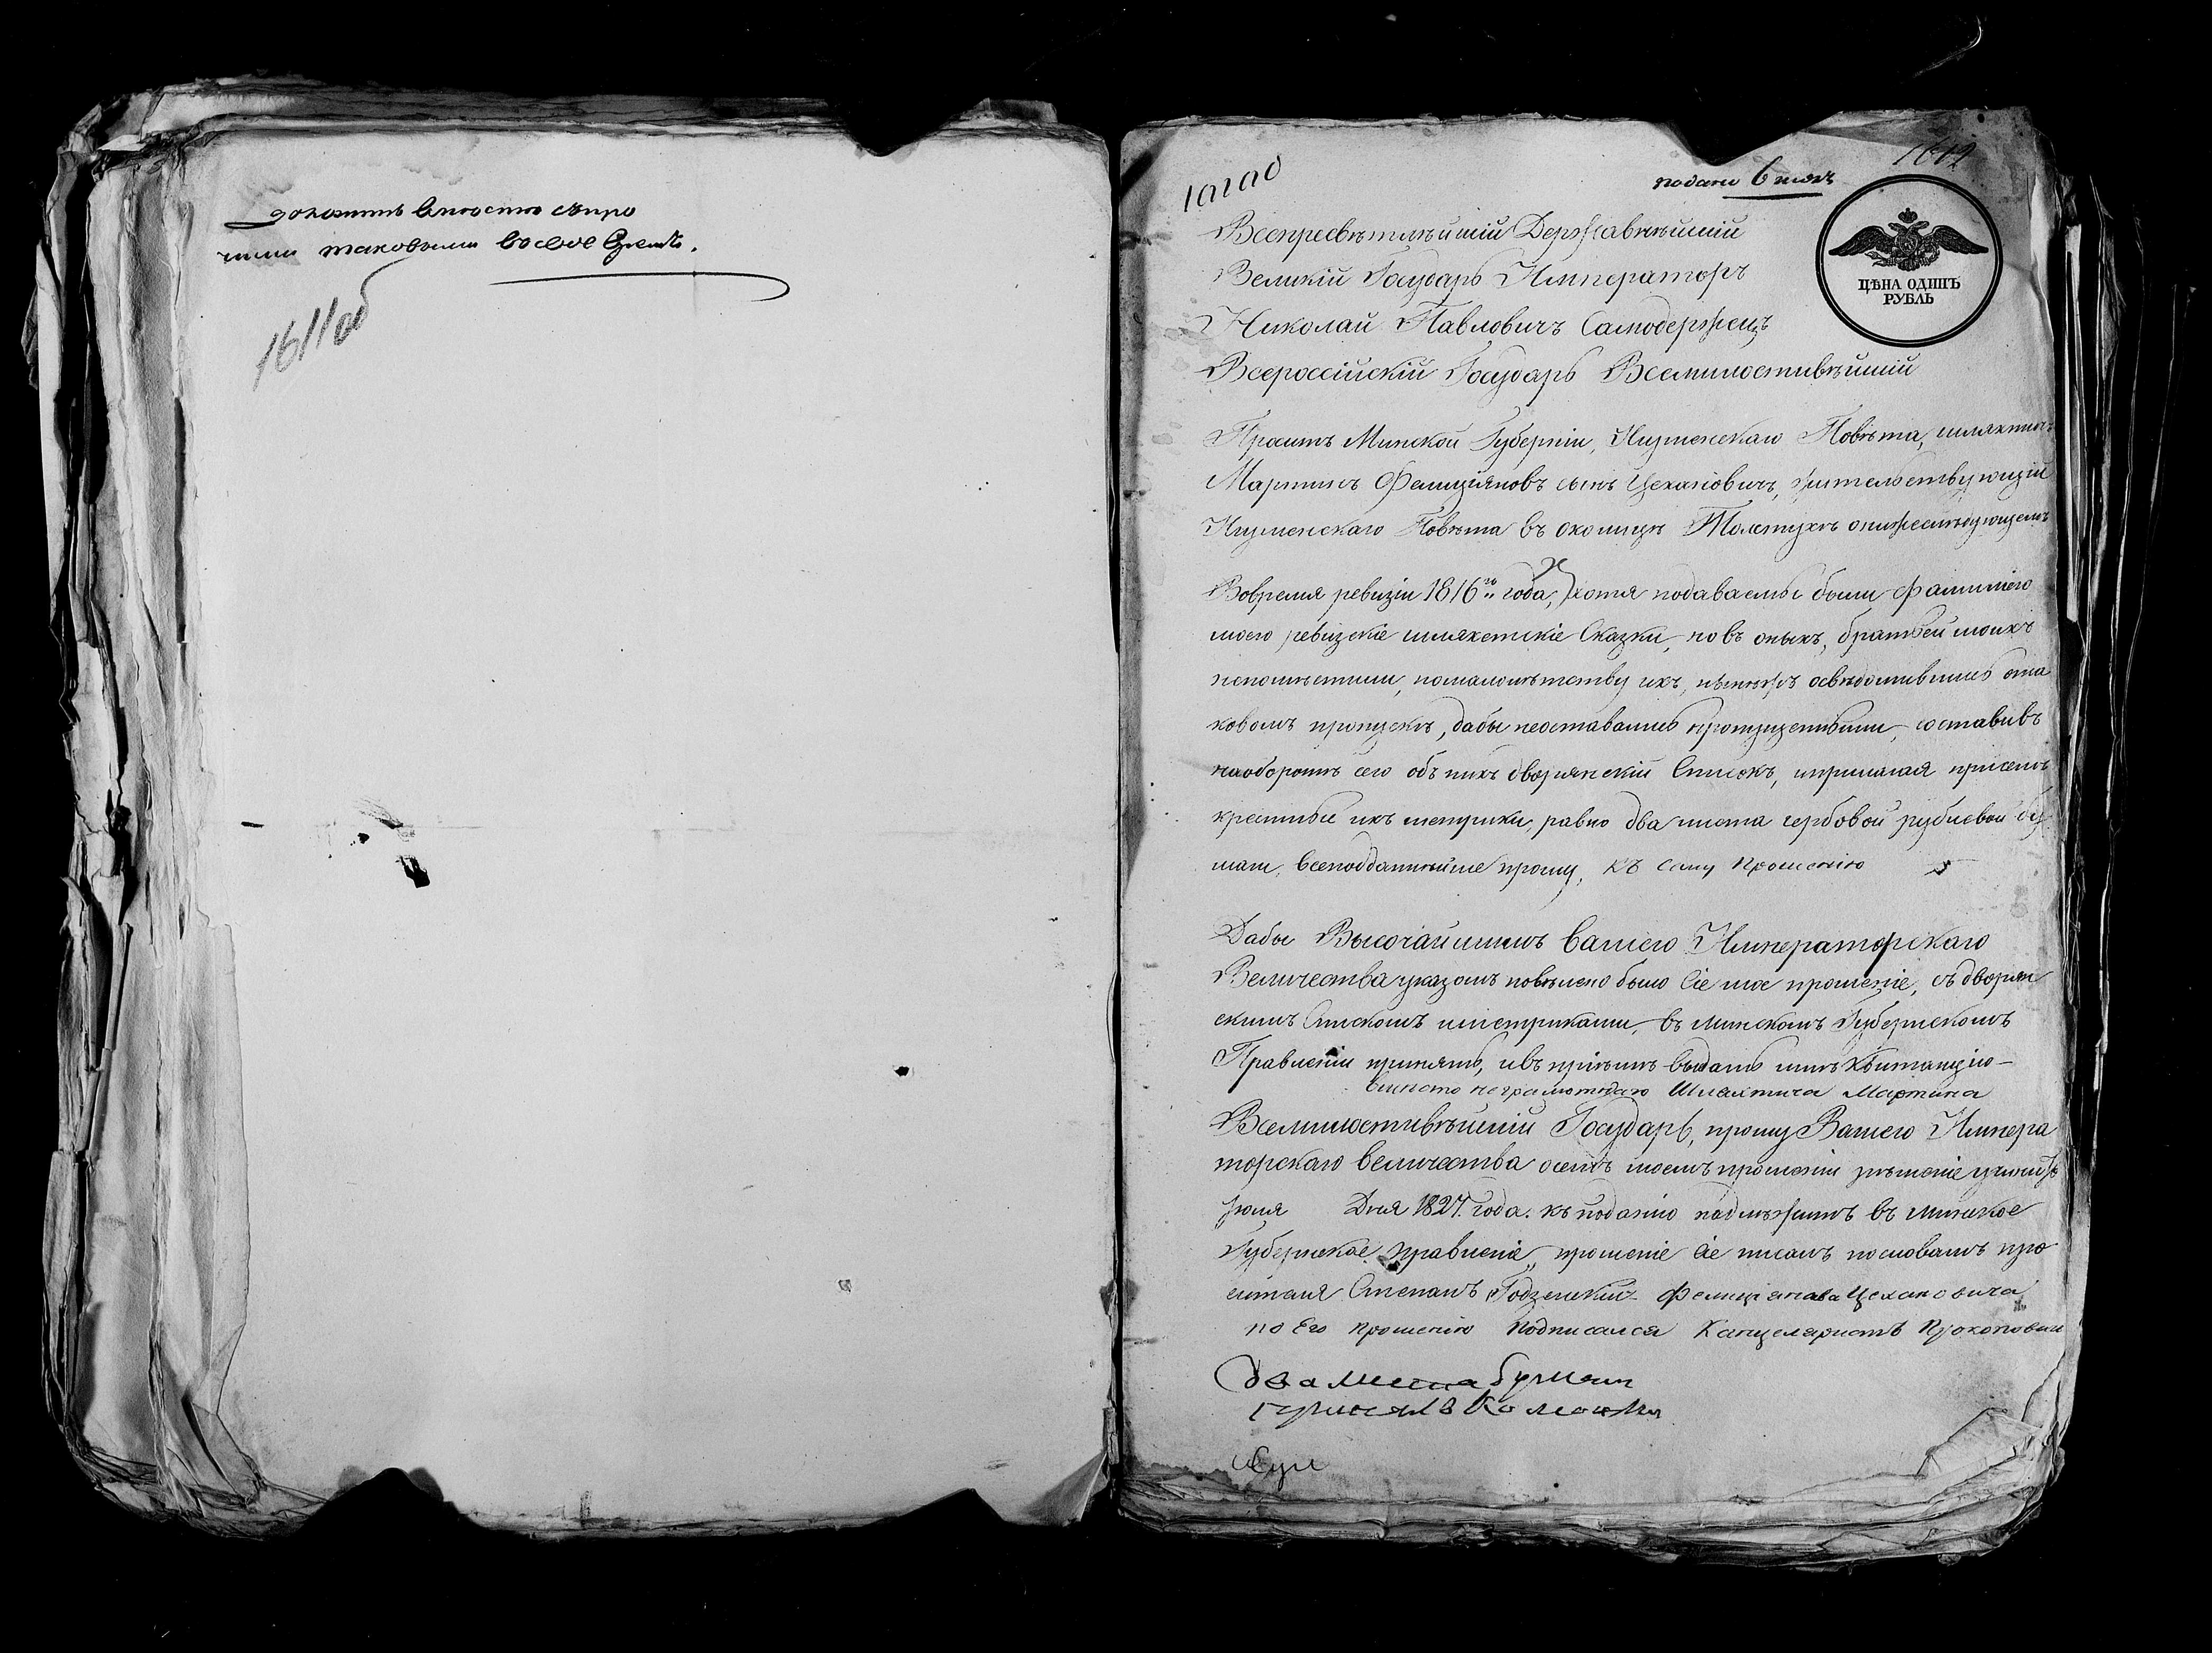 доложить вместе съ про
чими таковыми во свое время.
1611 об
подано 6 июля
Всепресвѣтлѣйшій Державнѣйшій
Великій Государь Императоръ
Николай Павловичъ Самодержецъ
Всероссійскій Государь Всемилостивѣйшій
ЦѢНА ОДИНЪ
РУБЛЬ
Проситъ Минской Губерніи, Игуменскаго Повѣта, шляхтичъ
Мартинъ Фелиціяновъ сынъ Цехановичъ, жительствующій
Игуменскаго Повѣта въ околицѣ
Вовремя ревизіи 1816го года, хотя подаваемы были Фамиліею
моею ревизскіе шляхетскіе Сказки, но въ оныхъ, братьей моихъ
непомѣстили, помалолѣтству ихъ, нынѣжъ освѣдомившись ота
ковомъ пропускѣ, дабы неоставались пропущенными, составивъ
наоборотѣ сего объ нихъ дворянскій Списокъ, иприлагая присемъ
крестные ихъ метрики, равно два листа гербовой рублевой бу
маги, всеподданнѣйше прошу, къ сему прошенію
Дабы Высочайшимъ Вашего Императорскаго
Величества указомъ повѣлено было Сіе мое прошеніе, съ дворян
скимъ Спискомъ иметриками, въ Минскомъ Губернскомъ
Правленіи принять, ивъ пріемѣ выдать мнѣ Квитанцію
вместо неграмотнаго Шляхтича Мартина
Всемилостивѣйшій Государь, прошу Вашего Импера
торскаго величества осемъ моемъ прошеніи рѣшеніе учинить
Іюля Дня 1827 года. къ поданію надлѣжитъ въ Минское
Губернское Правленіе, прошеніе Сіе писалъ пословамъ про
сителя Степанъ Фелиціанова Цехановича
по Его прошенію подписался Канцеляристъ Прокопович
два листа бумаги